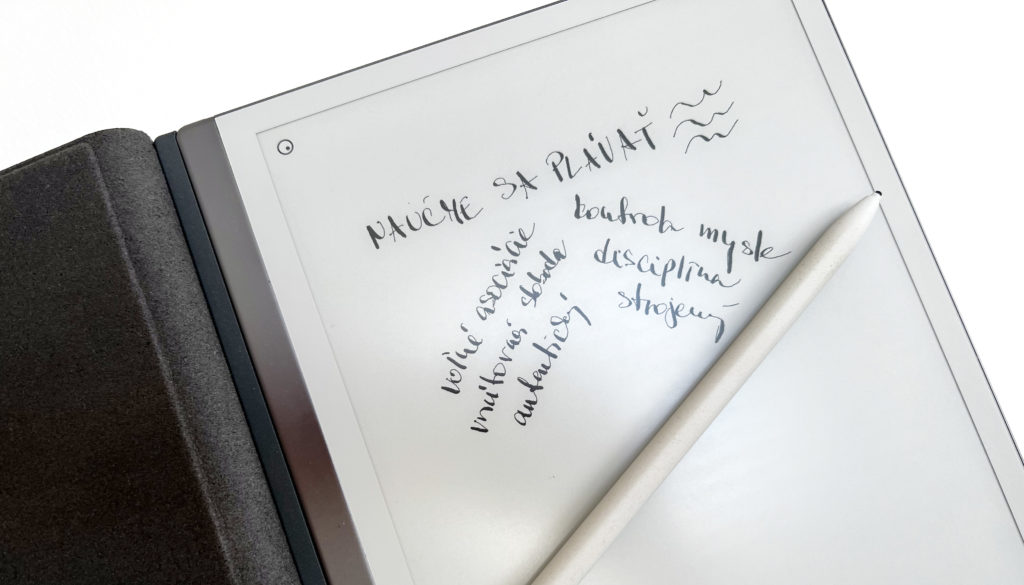 NAUČME SA PLÁVAŤ
voľné asociácie
vnútorná sloboda
autentický
kontrola mysle
disciplína
strojený